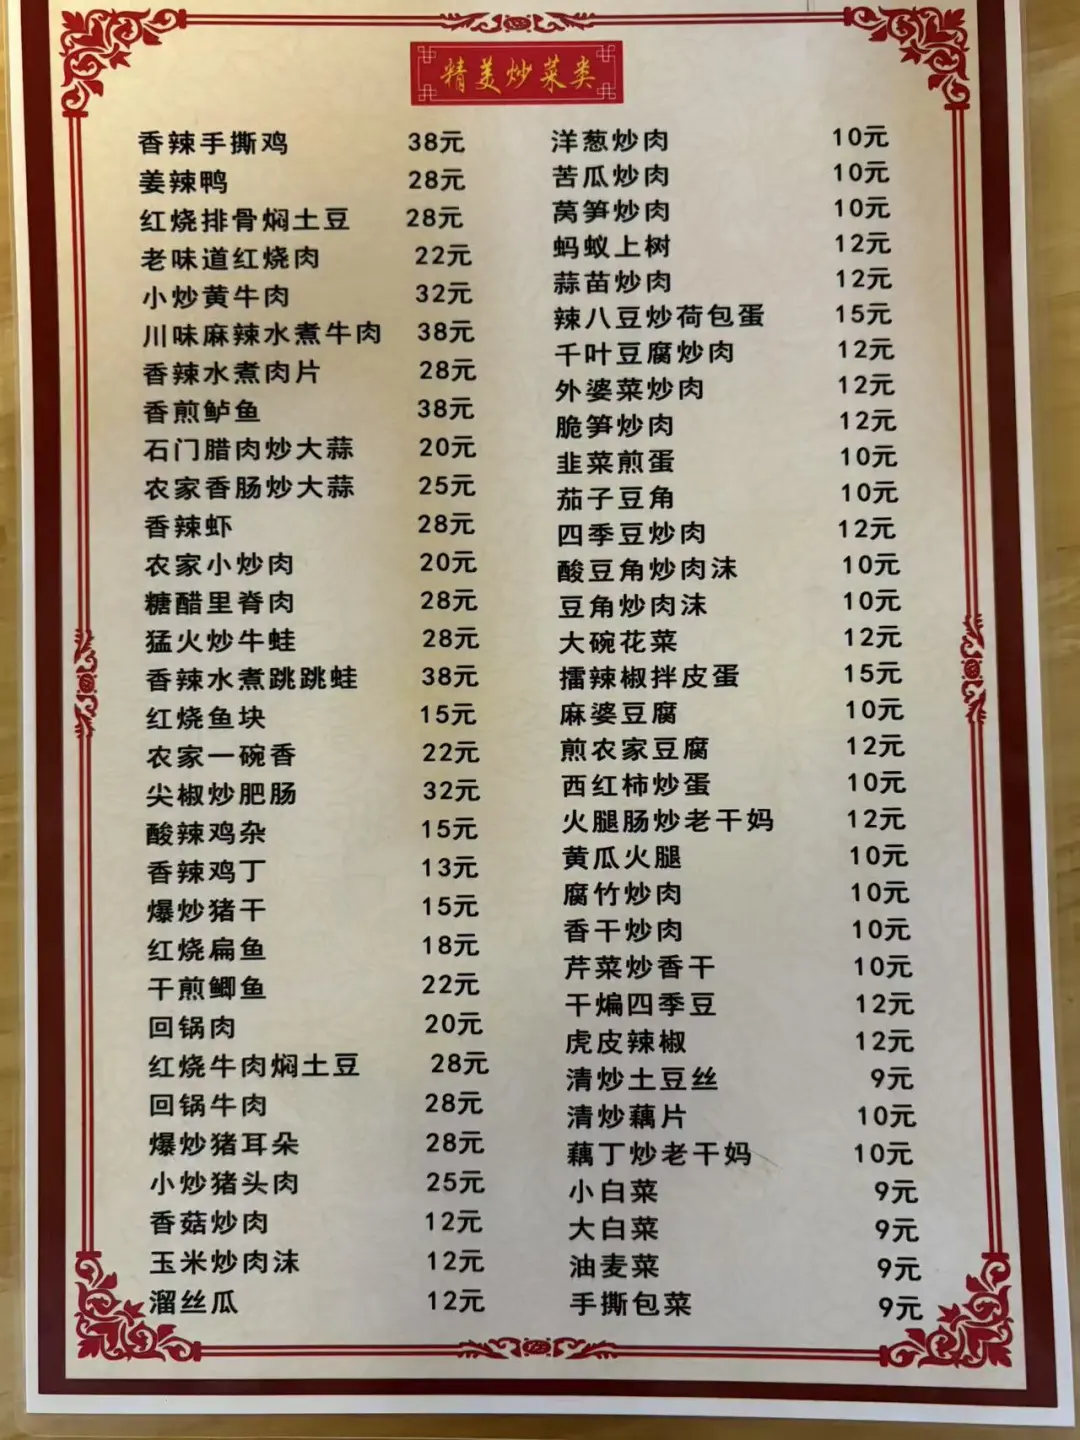 精美炒菜类
香辣手撕鸡 38元
姜辣鸭 28元
红烧排骨焖土豆 28元
老味道红烧肉 22元
小炒黄牛肉 32元
川味麻辣水煮牛肉 38元
香辣水煮肉片 28元
香煎鲈鱼 38元
石门腊肉炒大蒜 20元
农家香肠炒大蒜 25元
香辣虾 28元
农家小炒肉 20元
糖醋里脊肉 28元
猛火炒牛蛙 28元
香辣水煮跳跳蛙 38元
红烧鱼块 15元
农家一碗香 22元
尖椒炒肥肠 32元
酸辣鸡杂 15元
香辣鸡丁 13元
爆炒猪干 15元
红烧扁鱼 18元
干煎鲫鱼 22元
回锅肉 20元
红烧牛肉焖土豆 28元
回锅牛肉 28元
爆炒猪耳朵 28元
小炒猪头肉 25元
香菇炒肉 12元
玉米炒肉沫 12元
溜丝瓜 12元
洋葱炒肉 10元
苦瓜炒肉 10元
莴笋炒肉 10元
蚂蚁上树 12元
蒜苗炒肉 12元
辣八豆炒荷包蛋 15元
千叶豆腐炒肉 12元
外婆菜炒肉 12元
脆笋炒肉 12元
韭菜煎蛋 10元
茄子豆角 10元
四季豆炒肉 12元
酸豆角炒肉沫 10元
豆角炒肉沫 10元
大碗花菜 12元
擂辣椒拌皮蛋 15元
麻婆豆腐 10元
煎农家豆腐 12元
西红柿炒蛋 10元
火腿肠炒老干妈 12元
黄瓜火腿 10元
腐竹炒肉 10元
香干炒肉 10元
芹菜炒香干 10元
干煸四季豆 12元
虎皮辣椒 12元
清炒土豆丝 9元
清炒藕片 10元
藕丁炒老干妈 10元
小白菜 9元
大白菜 9元
油麦菜 9元
手撕包菜 9元